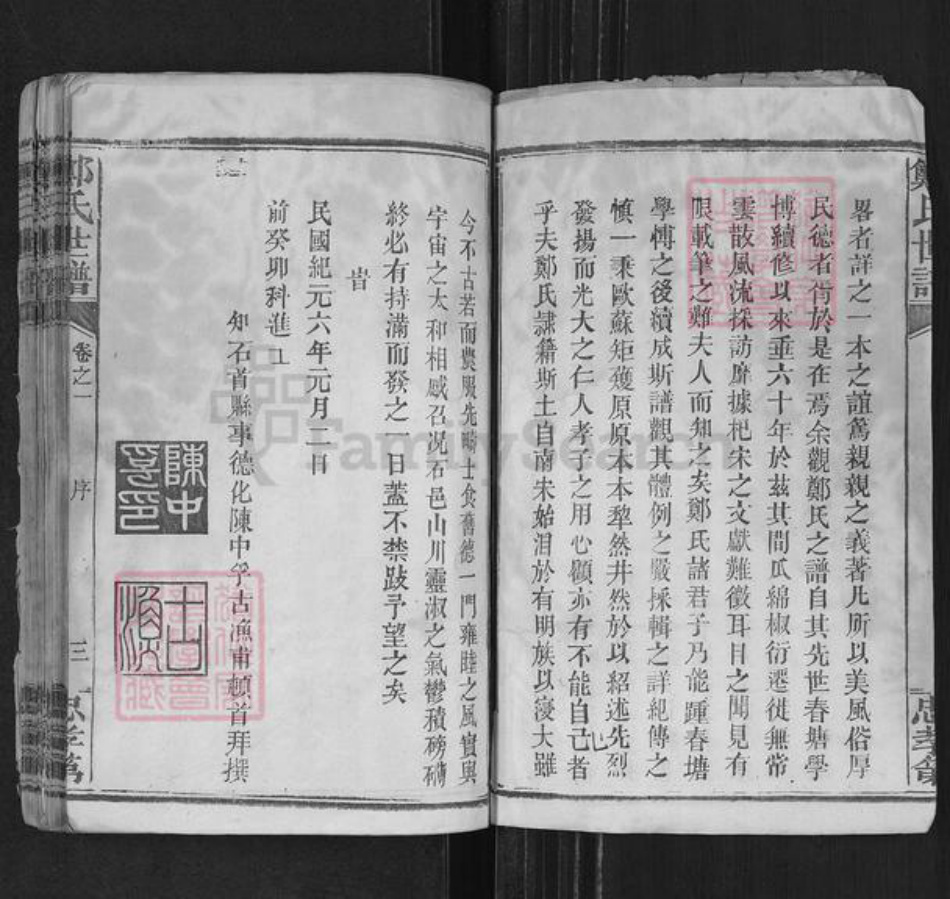 鄭氏世譜
畧者詳之一本之誼篤親親之義著凡所以美風俗厚
民德者胥於是在焉余觀鄭氏之譜自其先世春塘學
博續修以來垂六十年於茲其間瓜綿椒衍遷徙無常
雲散風流採訪靡據杞宋之文獻難徵耳目之聞見有
限載筆之難夫人而知之矣鄭氏諸君子乃能踵春塘
學博之後續成斯譜觀其體例之嚴採輯之詳紀傳之
慎一秉歐蘇矩矱原原本本犂然井然於以紹述先烈
發揚而光大之仁人孝子之用心顧亦有不能自己者
乎夫鄭氏隸籍斯土自南宋始洎於有明族以寖大雖
今不古若而農服先疇士食舊德一門雍睦之風實與
宇宙之大和相感召况石邑山川靈淑之氣鬱積磅礴
終必有持滿而發之一日蓋不禁跂予望之矣
旹
民國紀元六年元月二日
前癸卯科進士
知石首縣事德化陳中孚古漁甫頓首拜撰
陳中孚印
古漁
鄭氏世譜
卷之一
序
三
忠孝第